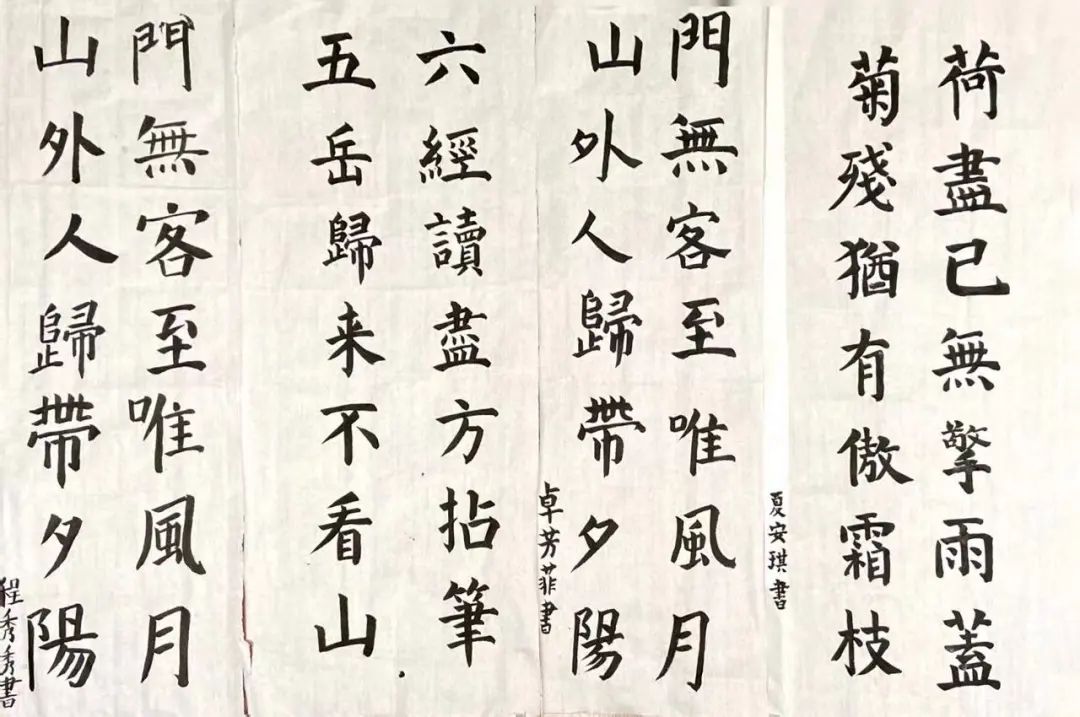 荷盡已無擎雨蓋
菊殘猶有傲霜枝
夏安琪書
門無客至唯風月
山外人歸帶夕陽
卓芳菲書
六經讀盡方拈筆
五岳歸来不看山
門無客至唯風月
山外人歸帶夕陽
程秀秀書